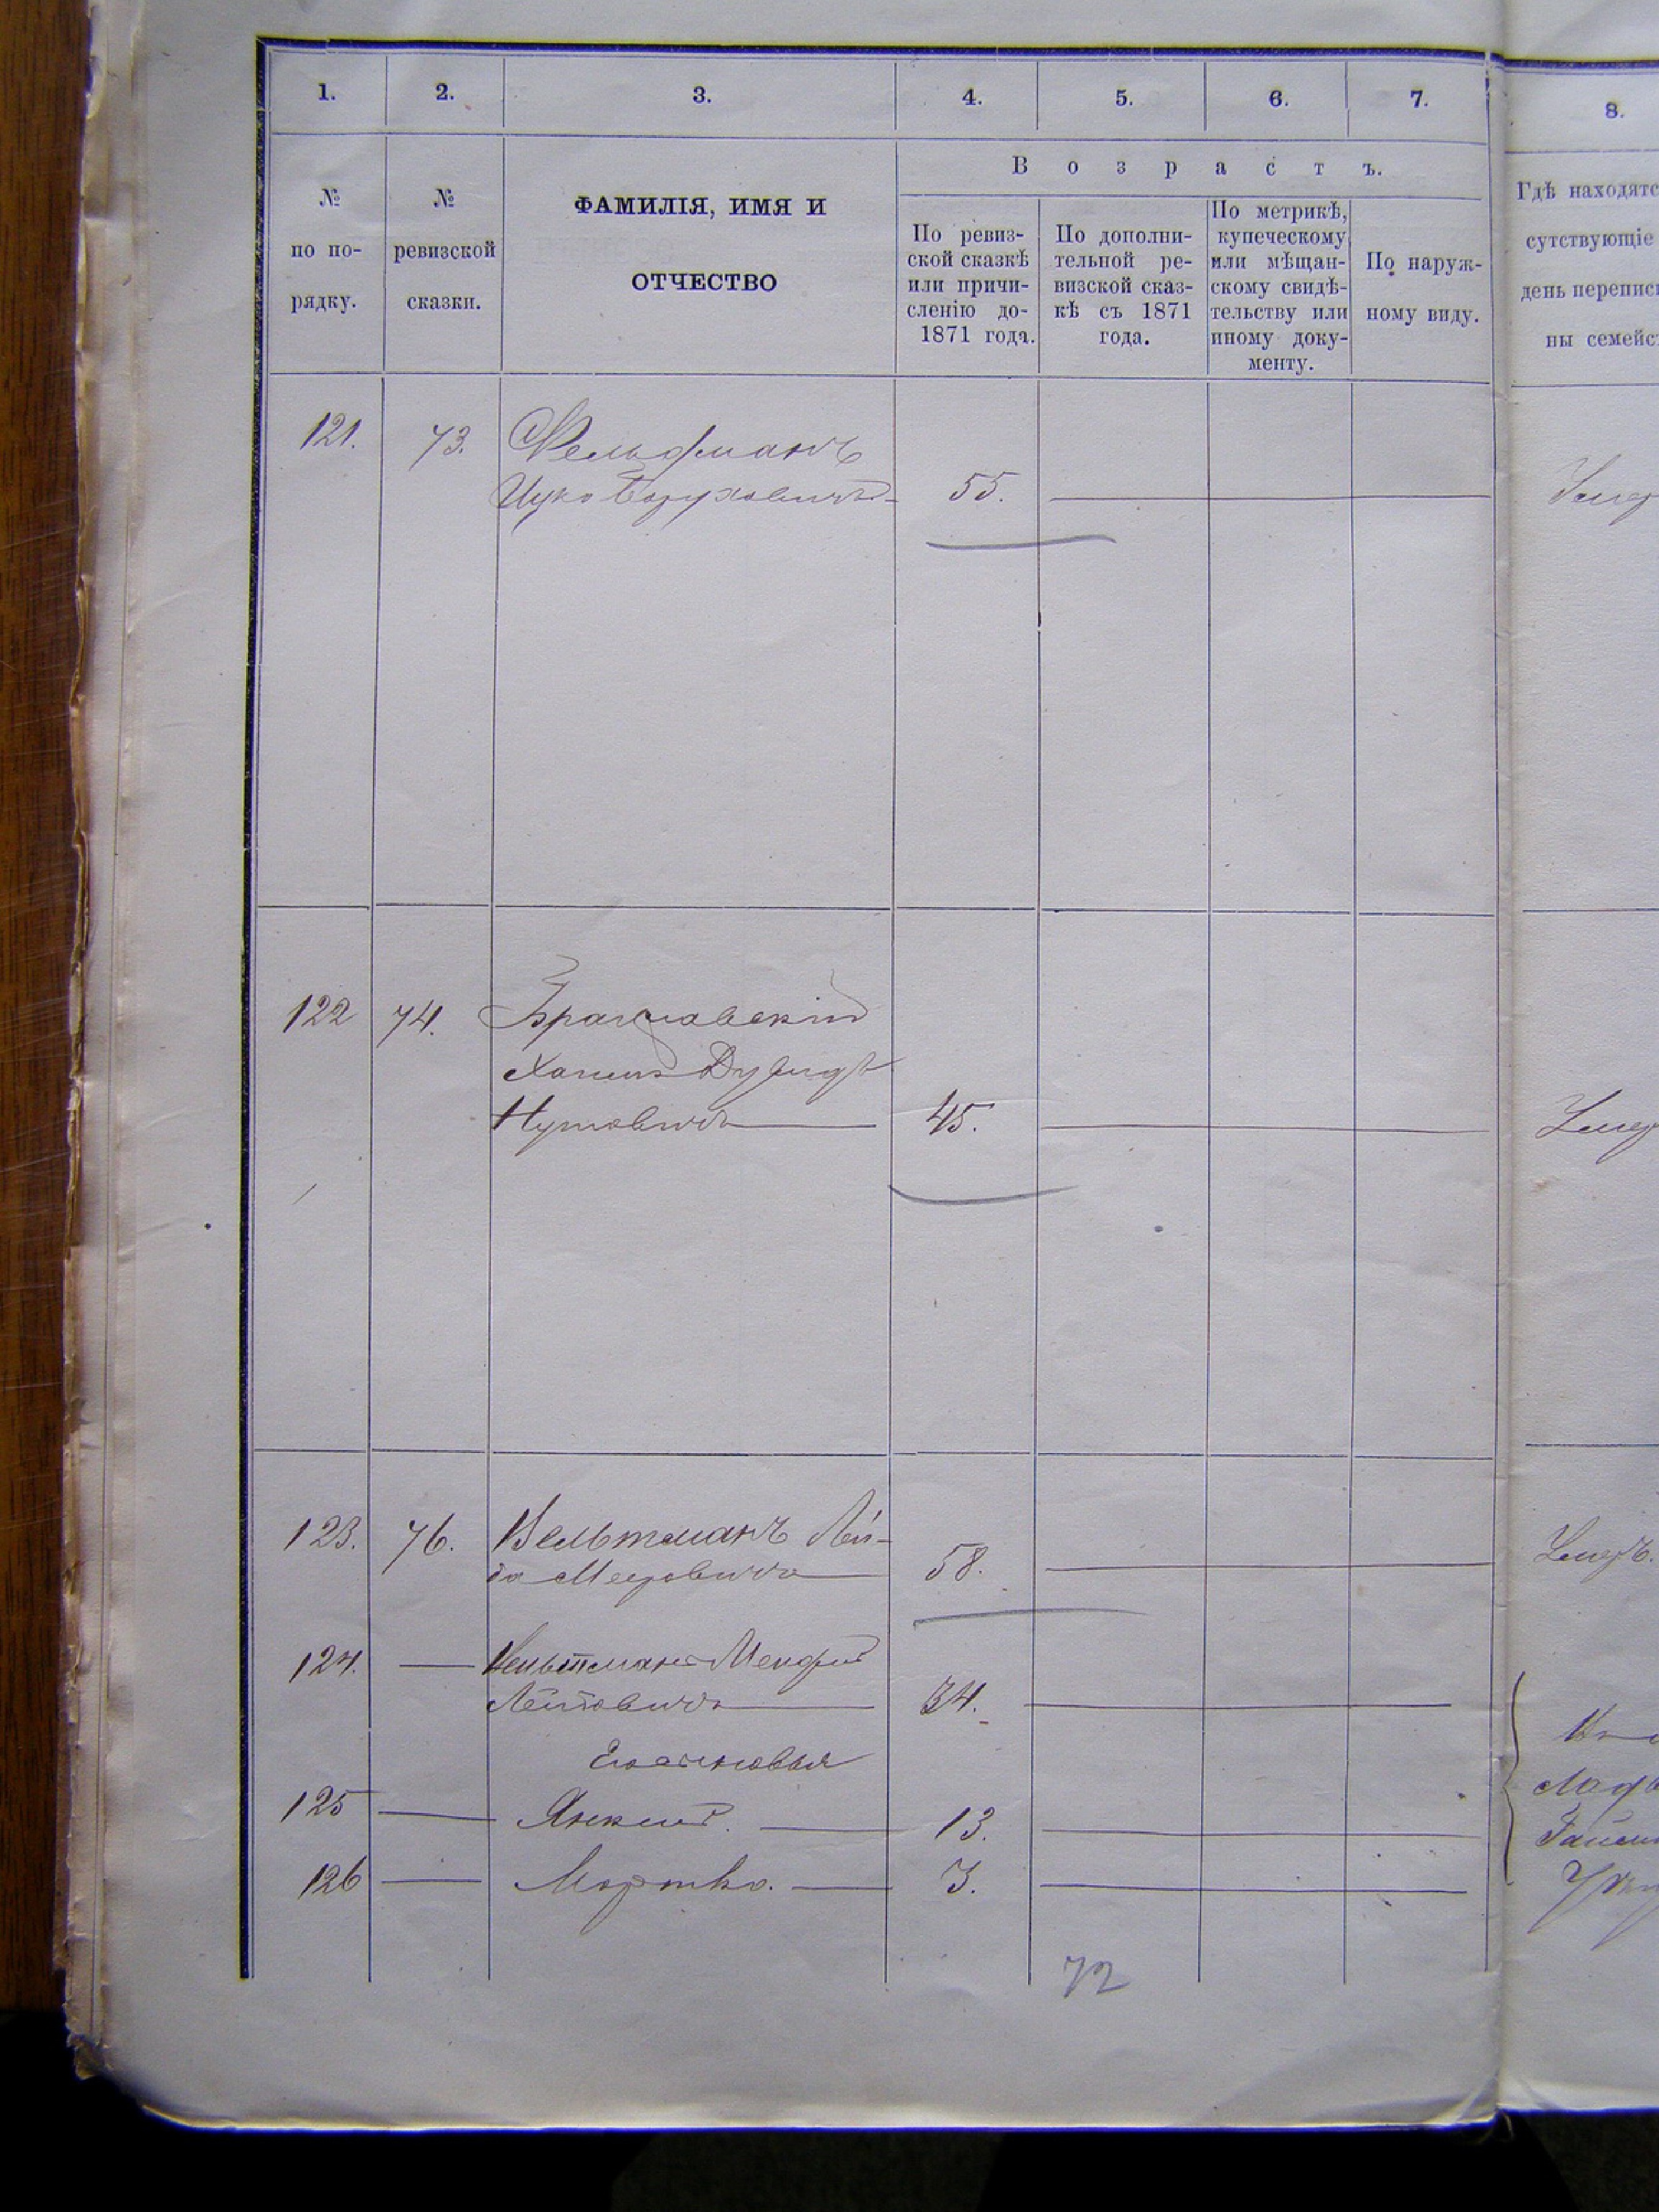 1. 2. 3. 4. 5. 6. 7. 8.
В о з р а с т ъ.
№ по по- рядку.
№ ревизской сказки.
ФАМИЛІЯ, ИМЯ И
ОТЧЕСТВО
По ревиз-
ской сказкѣ
или причи-
сленію до-
1871 года.
По дополни-
тельной ре-
визской сказ-
кѣ съ 1871
года.
По метрикѣ,
купеческому
или мѣщан-
скому свидѣ-
тельству или
иному доку-
менту.
По наруж-
ному виду.
Гдѣ находятс
сутствующіе
день переписи
ны семейс
121. 73. Фельдманъ
Ицко Боруховичъ 55. Умер
122 74. Брацлавскій
Хаимъ Дувидъ
Нутовичъ 45. Умер
123. 76. Вельтманъ Лей-
ба Меировичъ 58. Умеръ.
124. Вельтманъ Мендель
Лейбовичъ 34.
Его сыновья
125 Янкель. 13.
126 Мортко. 3.
72